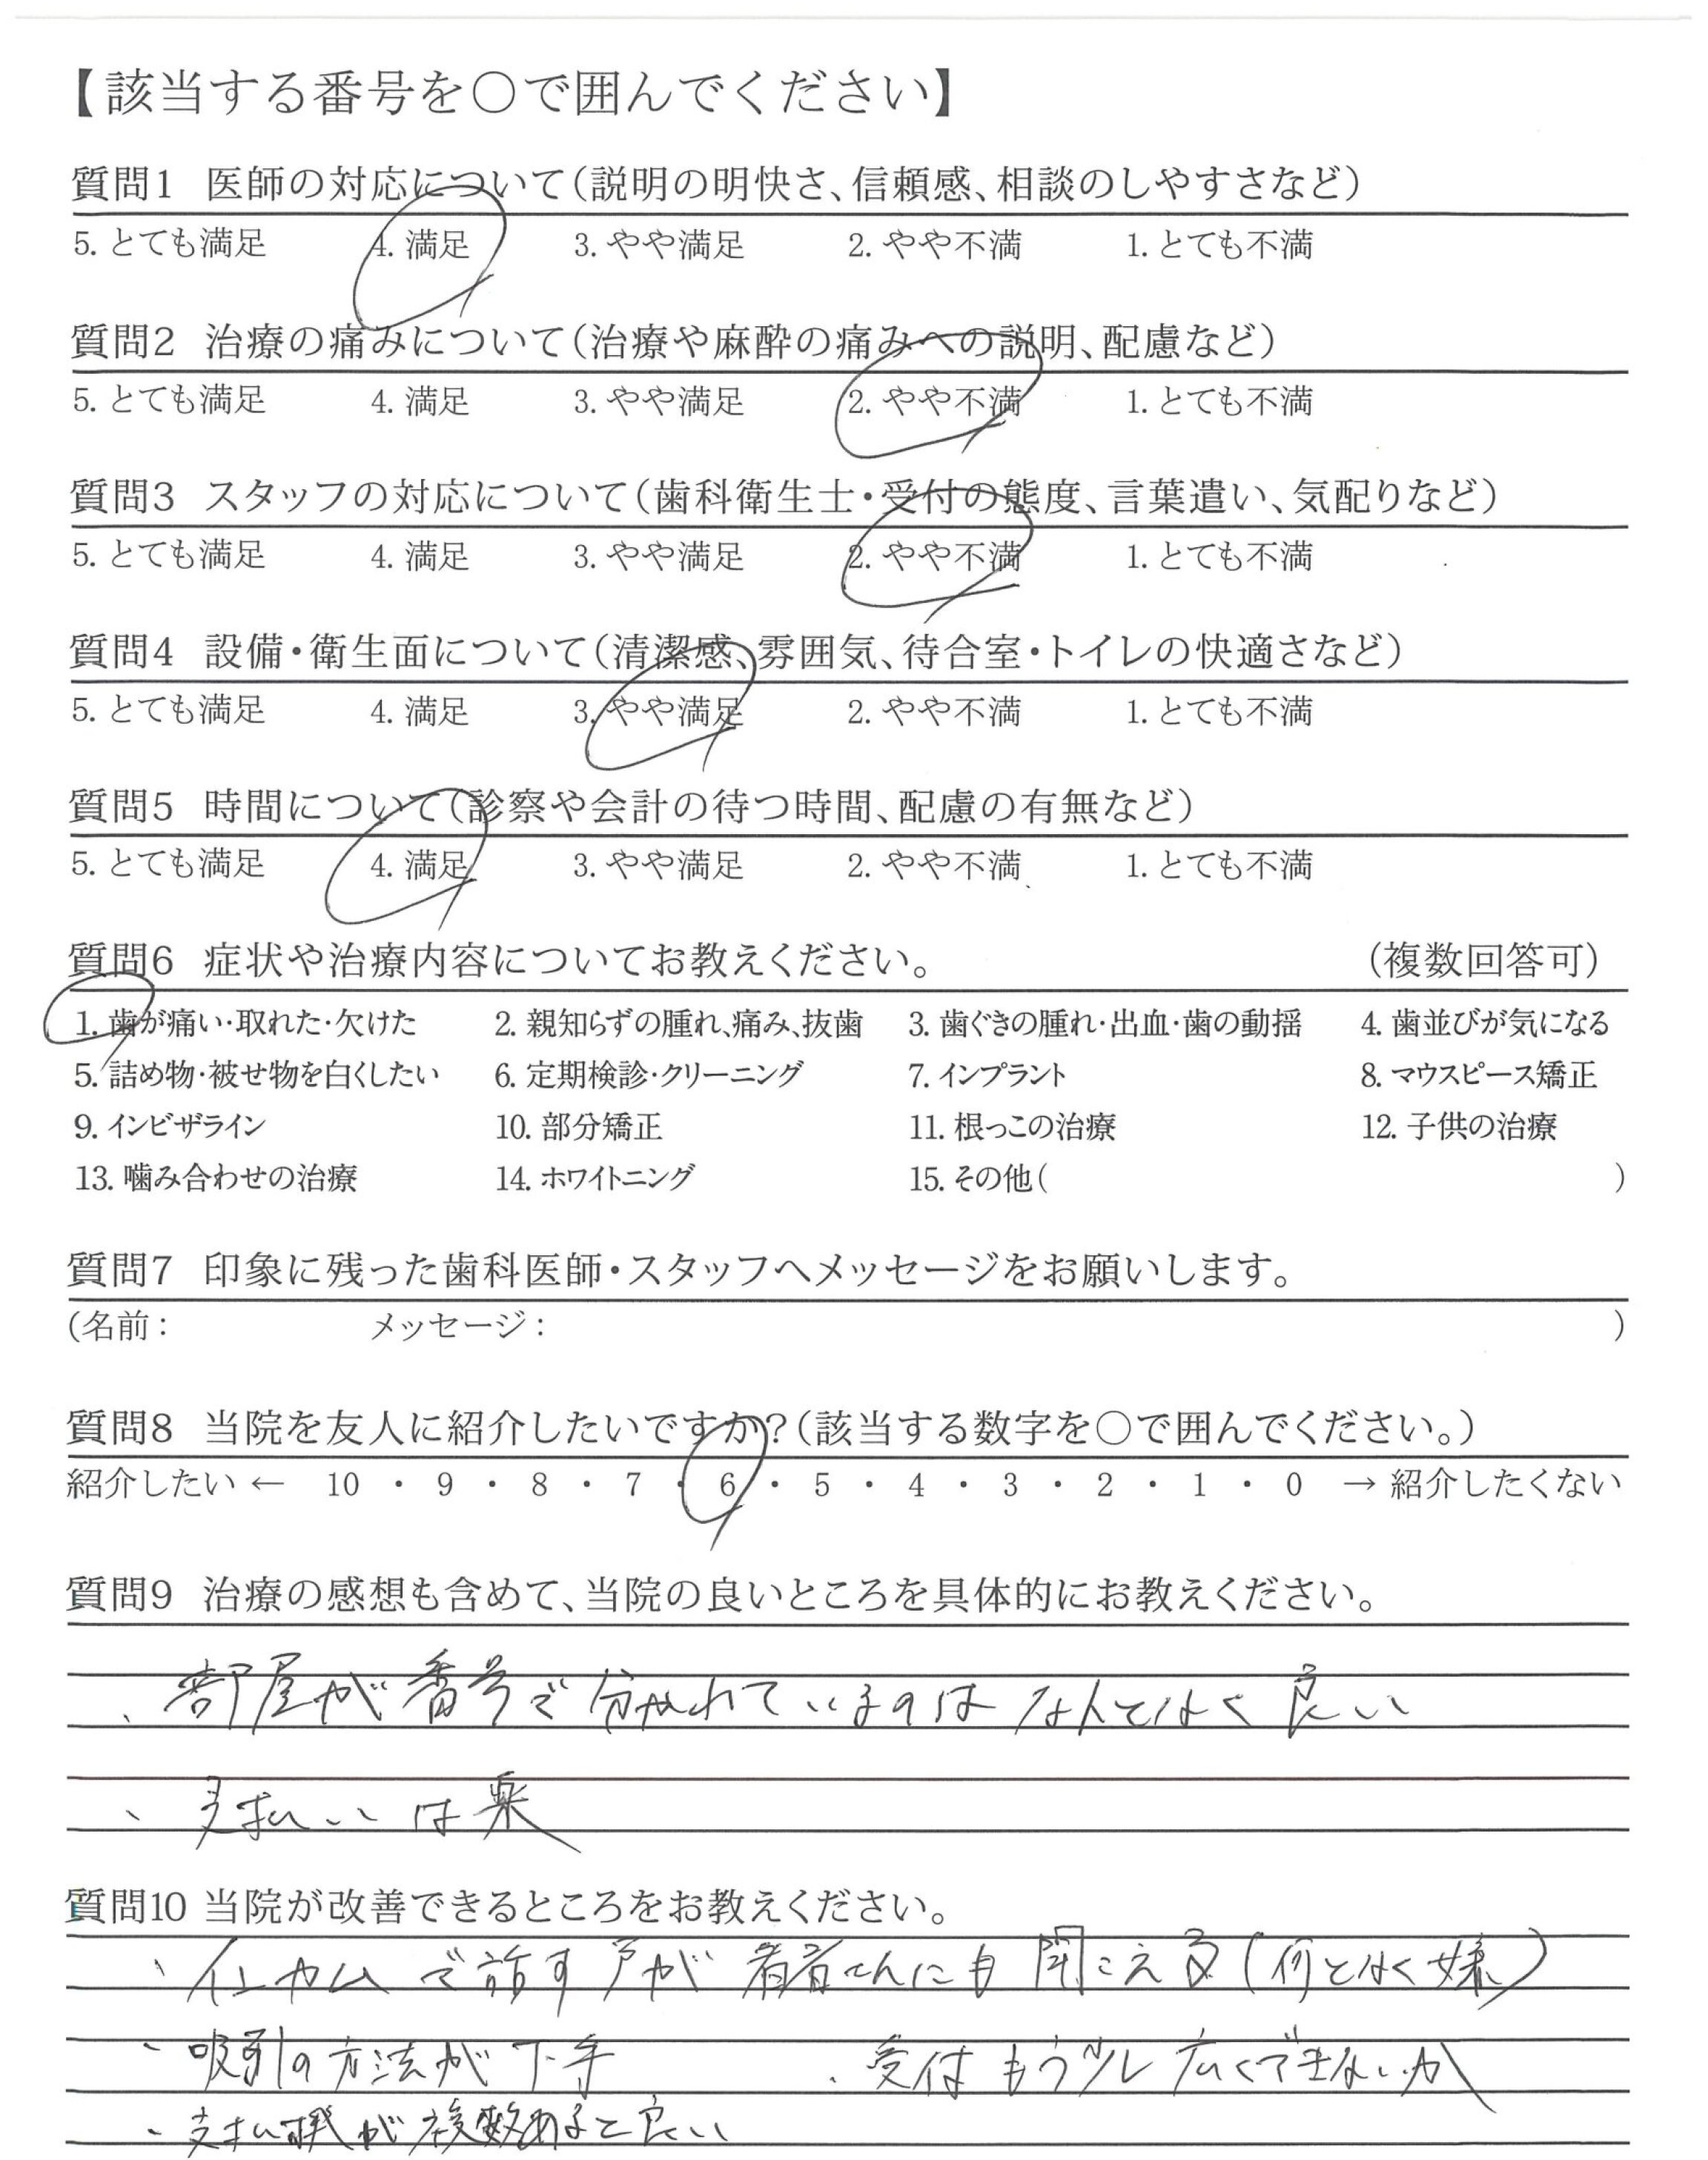 【該当する番号を○で囲んでください】
質問1 医師の対応について(説明の明快さ、信頼感、相談のしやすさなど)
5. とても満足 4. 満足 3. やや満足 2. やや不満 1. とても不満
質問2 治療の痛みについて(治療や麻酔の痛みへの説明、配慮など)
5. とても満足 4. 満足 3. やや満足 2. やや不満 1. とても不満
質問3 スタッフの対応について(歯科衛生士・受付の態度、言葉遣い、気配りなど)
5. とても満足 4. 満足 3. やや満足 2. やや不満 1. とても不満
質問4 設備・衛生面について(清潔感、雰囲気、待合室・トイレの快適さなど)
5. とても満足 4. 満足 3. やや満足 2. やや不満 1. とても不満
質問5 時間について(診察や会計の待つ時間、配慮の有無など)
5. とても満足 4. 満足 3. やや満足 2. やや不満 1. とても不満
質問6 症状や治療内容についてお教えください。 (複数回答可)
1. 歯が痛い・取れた・欠けた 2. 親知らずの腫れ、痛み、抜歯 3. 歯ぐきの腫れ・出血・歯の動揺 4. 歯並びが気になる
5. 詰め物・被せ物を白くしたい 6. 定期検診・クリーニング 7. インプラント 8. マウスピース矯正
9. インビザライン 10. 部分矯正 11. 根っこの治療 12. 子供の治療
13. 噛み合わせの治療 14. ホワイトニング 15. その他( )
質問7 印象に残った歯科医師・スタッフへメッセージをお願いします。
(名前: メッセージ: )
質問8 当院を友人に紹介したいですか?(該当する数字を○で囲んでください。)
紹介したい ← 10 ・ 9 ・ 8 ・ 7 ・ 6 ・ 5 ・ 4 ・ 3 ・ 2 ・ 1 ・ 0 → 紹介したくない
質問9 治療の感想も含めて、当院の良いところを具体的にお教えください。
、部屋が番号で分かれているのはなんとなく良い
、支払いは楽
質問10 当院が改善できるところをお教えください。
、インカムで話す声が患者さんにも聞こえる(何となく嫌)
、吸引の方法が下手 、受付もう少し広くできないか
、支払い機が複数あると良い